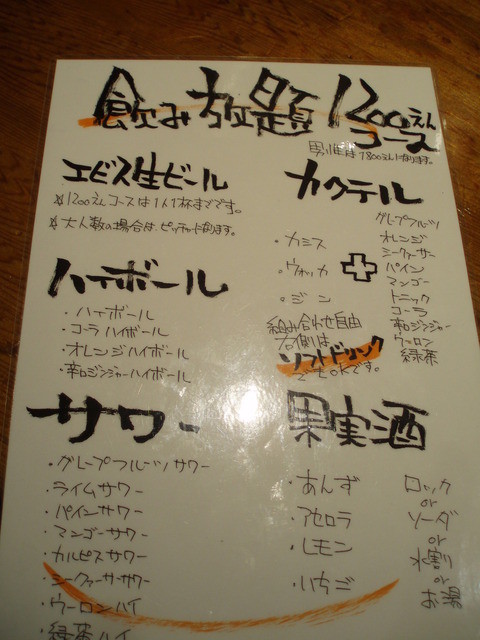 飲み放題 1200えんコース
男性は1800えんになります。
エビス生ビール
☆1200えんコースは1人1杯までです。
☆大人数の場合は、ピッチャーになります。
ハイボール
・ハイボール
・コーラハイボール
・オレンジハイボール
・辛口ジンジャーハイボール
サワー
・グレープフルーツサワー
・ライムサワー
・パインサワー
・マンゴーサワー
・カルピスサワー
・シークァーサーサワー
・ウーロンハイ
・緑茶ハイ
カクテル
・カシス
・ウォッカ
・ジン
+
グレープフルーツ
オレンジ
シークァーサー
パイン
マンゴー
トニック
コーラ
辛口ジンジャー
ウーロン
緑茶
組み合わせ自由
右側は、
ソフトドリンク
でもOKです。
果実酒
・あんず
・アセロラ
・レモン
・いちご
ロック
or
ソーダ
or
水割
or
お湯